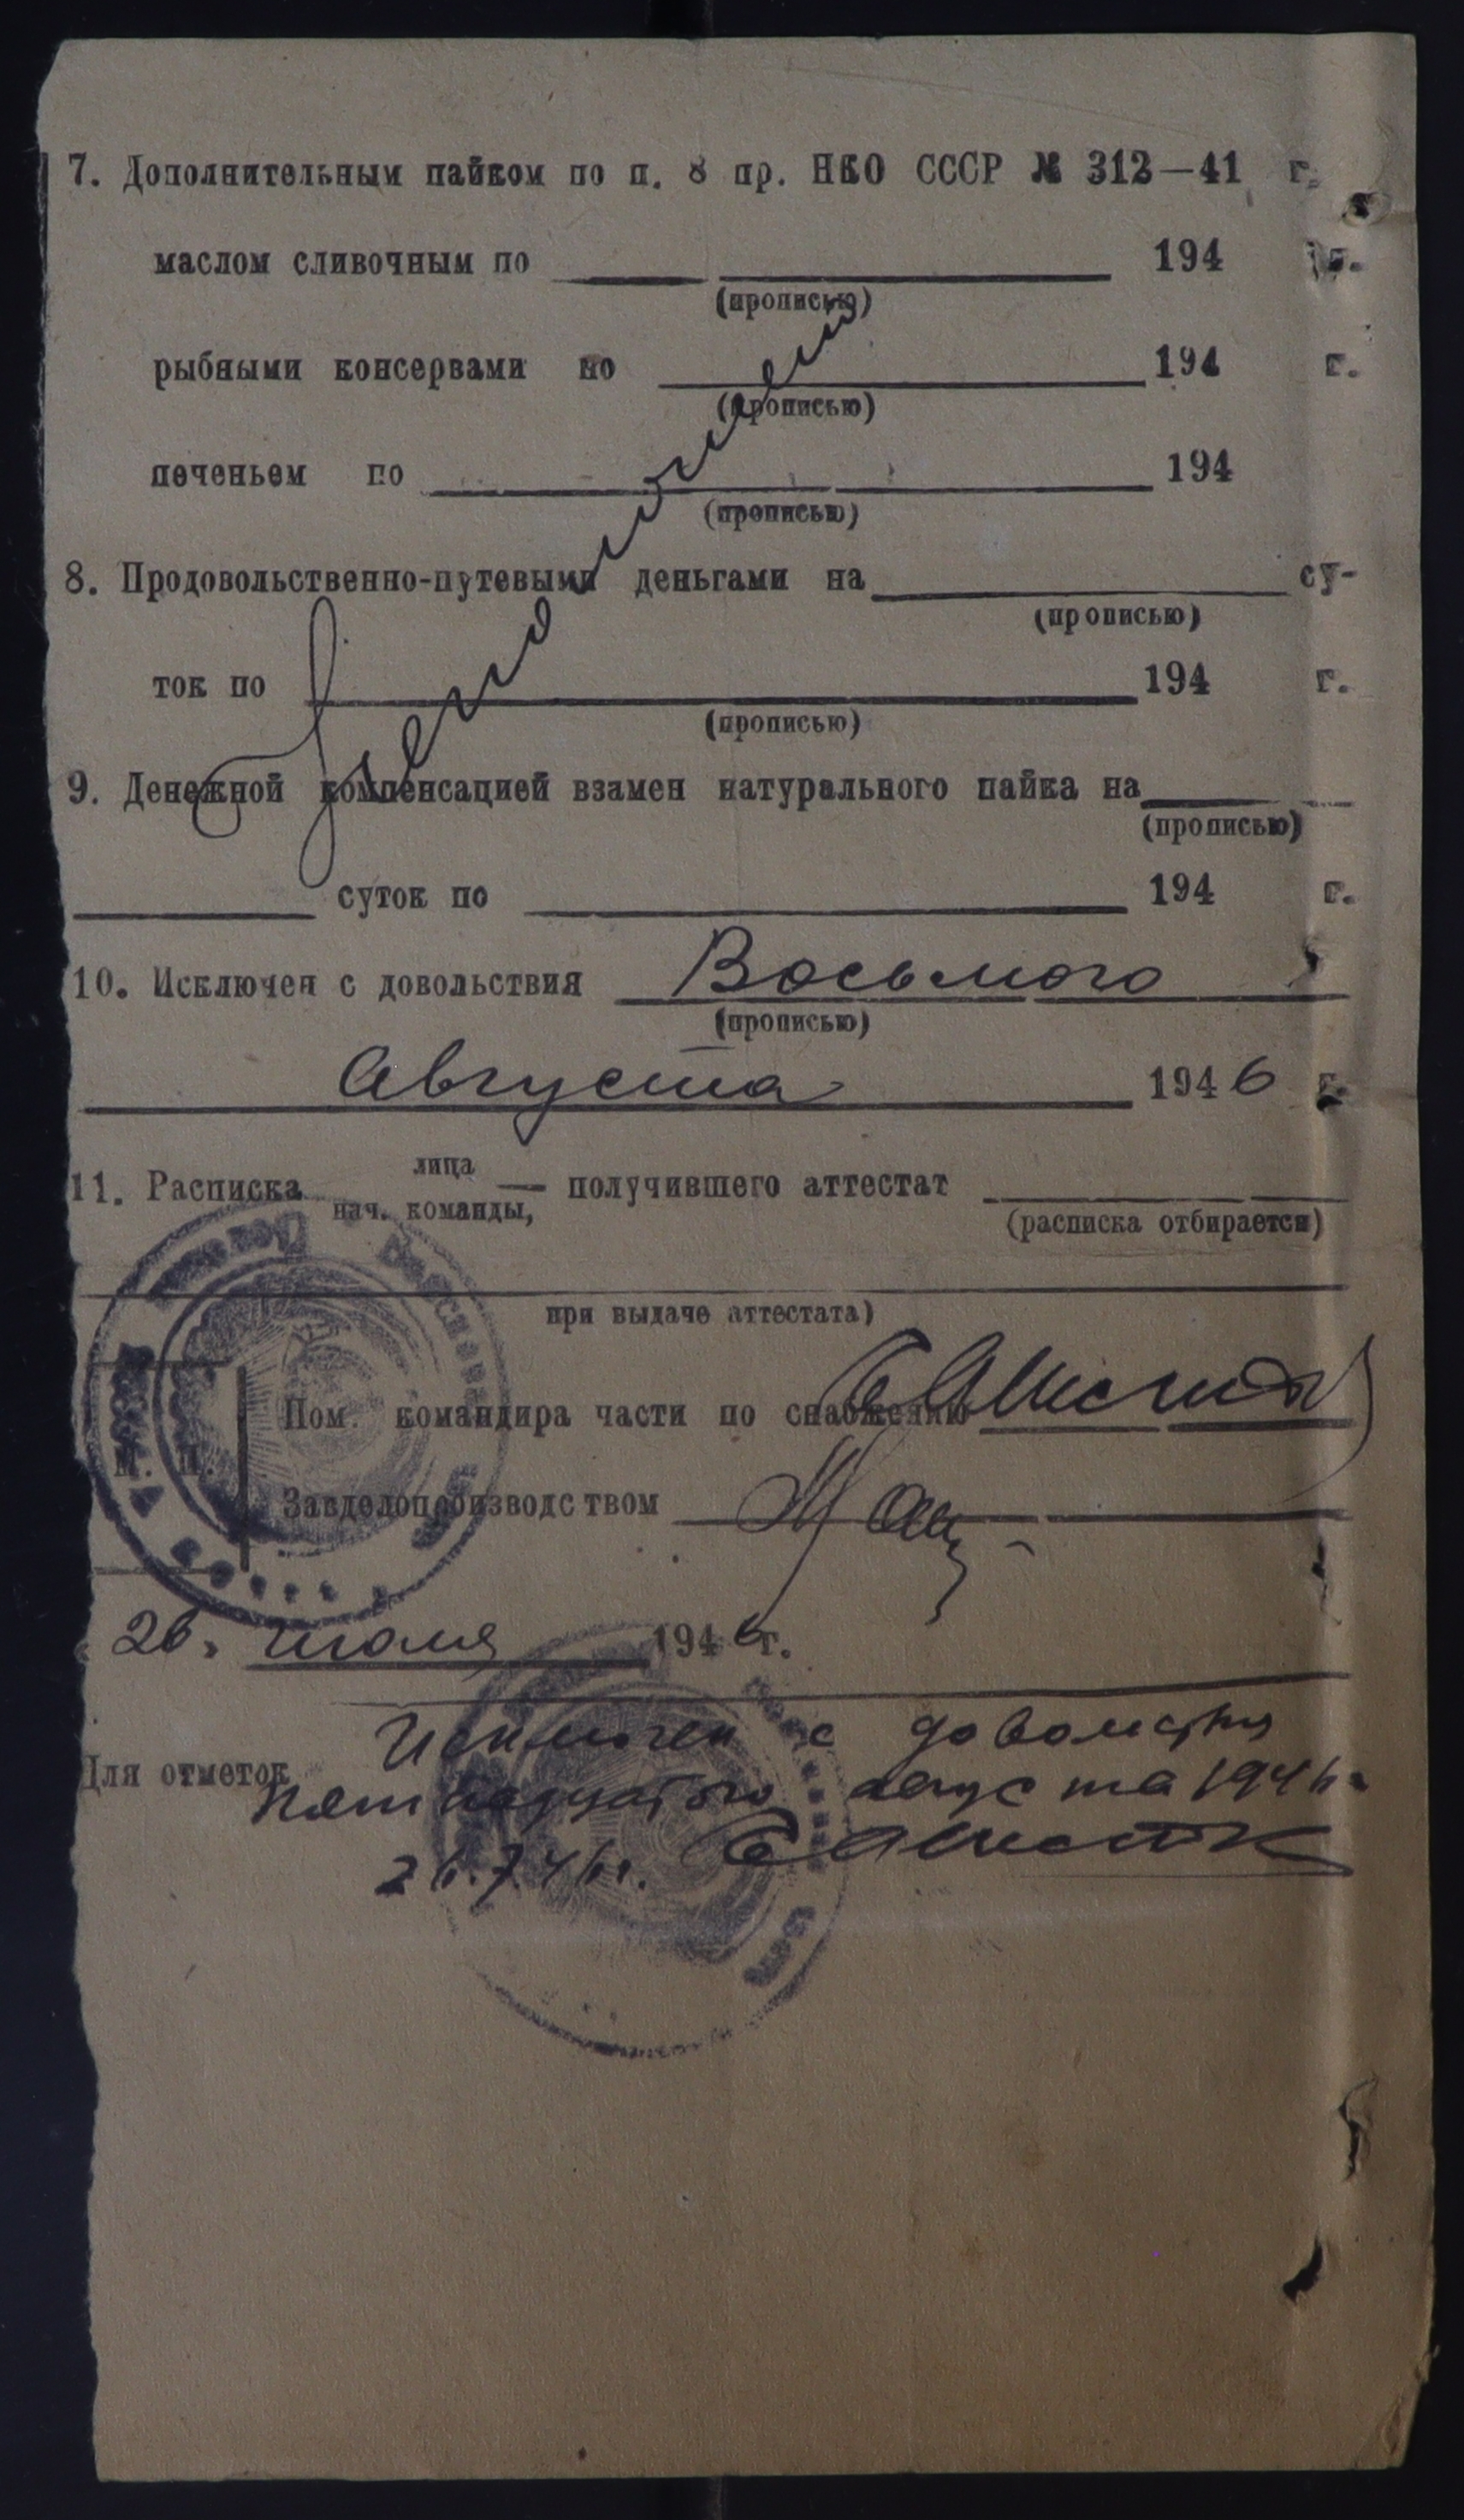 7. Дополнительным пайком по п. 8 пр. НКО СССР № 312—41 г.
маслом сливочным по 194 г.
(прописью)
рыбными консервами по 194 г.
(прописью)
печеньем по 194
(прописью)
8. Продовольственно-путевыми деньгами на су-
(прописью)
ток по 194 г.
(прописью)
9. Денежной компенсацией взамен натурального пайка на
(прописью)
суток по 194 г.
10. Исключен с довольствия Восьмого
(прописью)
Августа 1946 г.
11. Расписка лица
нач. команды, — получившего аттестат
(расписка отбирается
при выдаче аттестата)
Пом. командира части по снабжению
М. П.
Завделопроизводством
26. июля 1946 г.
Исключен с довольствия
Для отметок
Пятнадцатого августа 1946 г.
26.7.46 г.